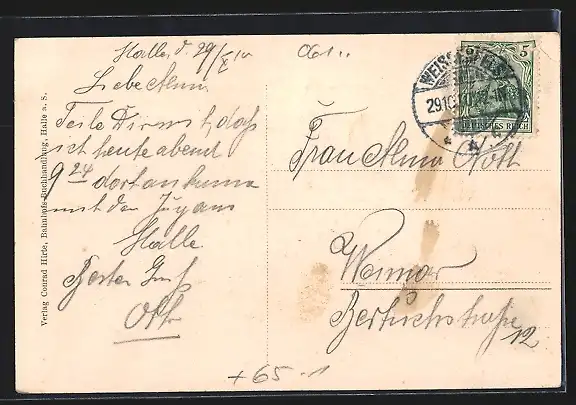 Halle d. 29/X 10
Liebe Anna
Teile Dir mit, daß
ich heute abend
9 24 dort ankomme
mit dem Zug aus
Halle
Besten Gruß
Otto
0611
WEISSENFELS
29.10
5 5
DEUTSCHES REICH
Frau Anna
Weimar
Bertuchstraße
12
+65.-1
Verlag Conrad Hirte, Bahnhofs-Buchhandlung, Halle a. S.